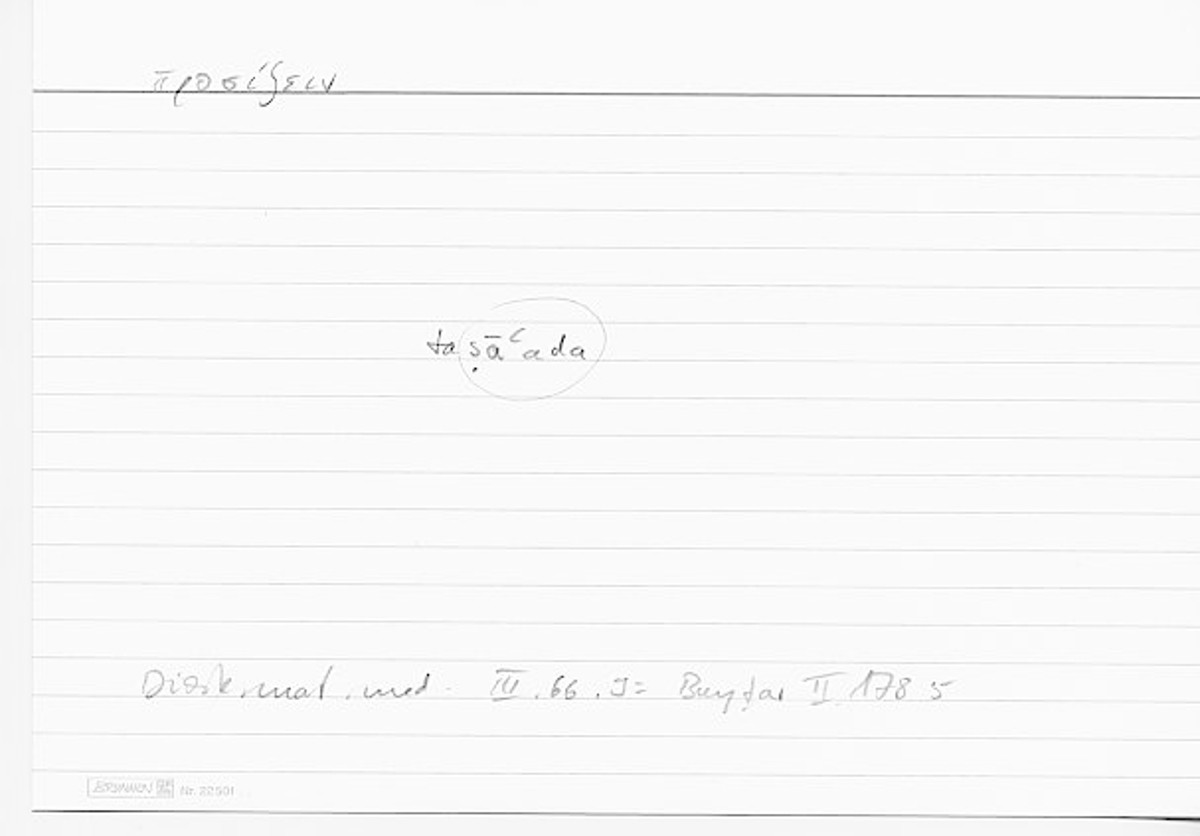 προσίζειν
taṣāʿada
Diosk. mat. med. III. 66. 9 = Bayṭar II 178 5
BRUNNEN Nr. 22501